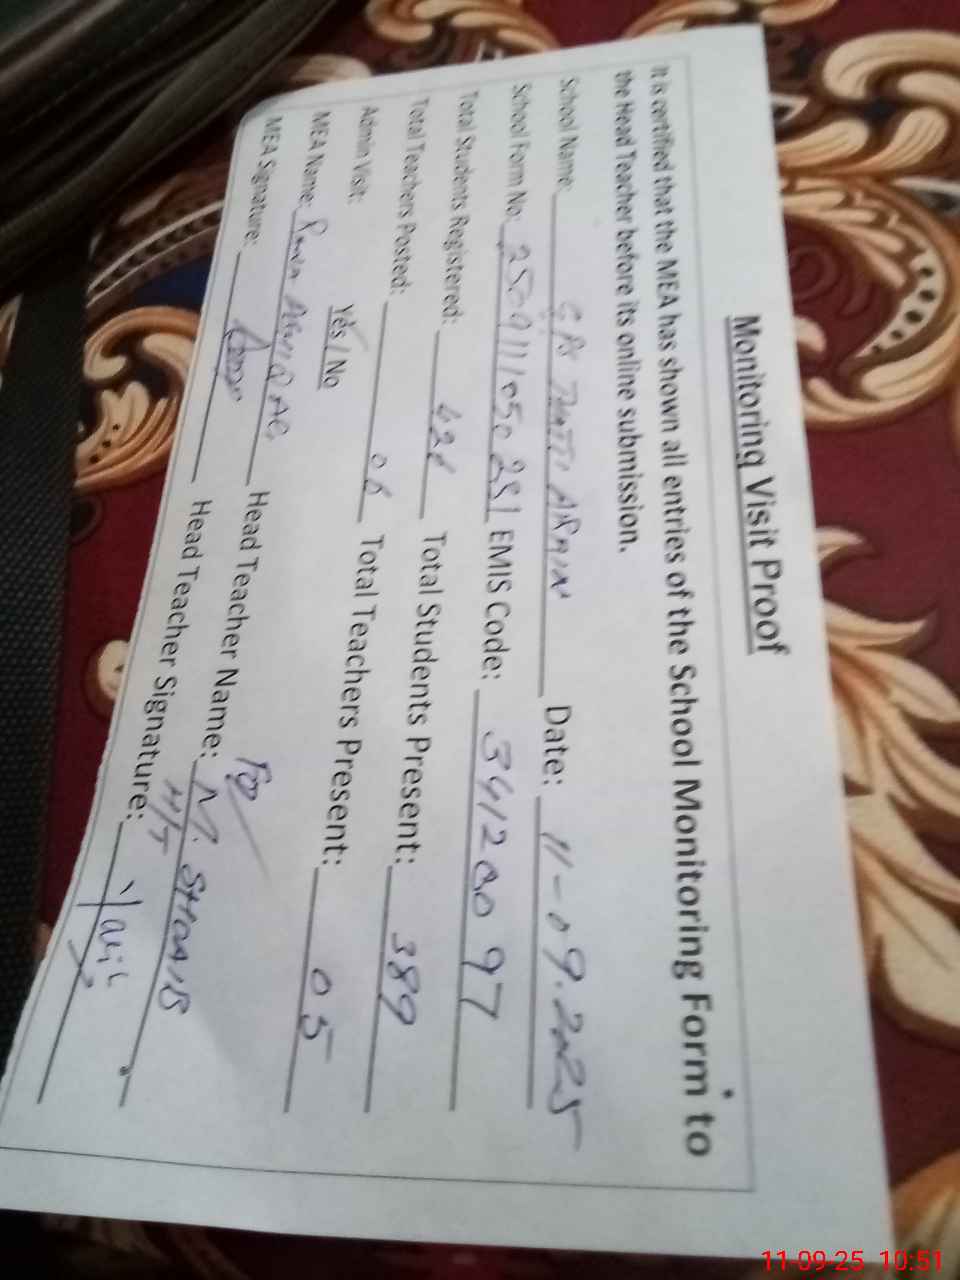 Monitoring Visit Proof
It is certified that the MEA has shown all entries of the School Monitoring Form to
the Head Teacher before its online submission.
School Name: GPS ARAIN Date: 11-09.2025
School Form No: 2509111050281 EMIS Code: 34120097
Total Students Registered: Total Students Present: 389
Total Teachers Posted: 06 Total Teachers Present: 05
Admin Visit: Yes / No
MEA Name: Head Teacher Name: M. SHOAIB
MEA Signature: Head Teacher Signature:
11-09-25 10:51